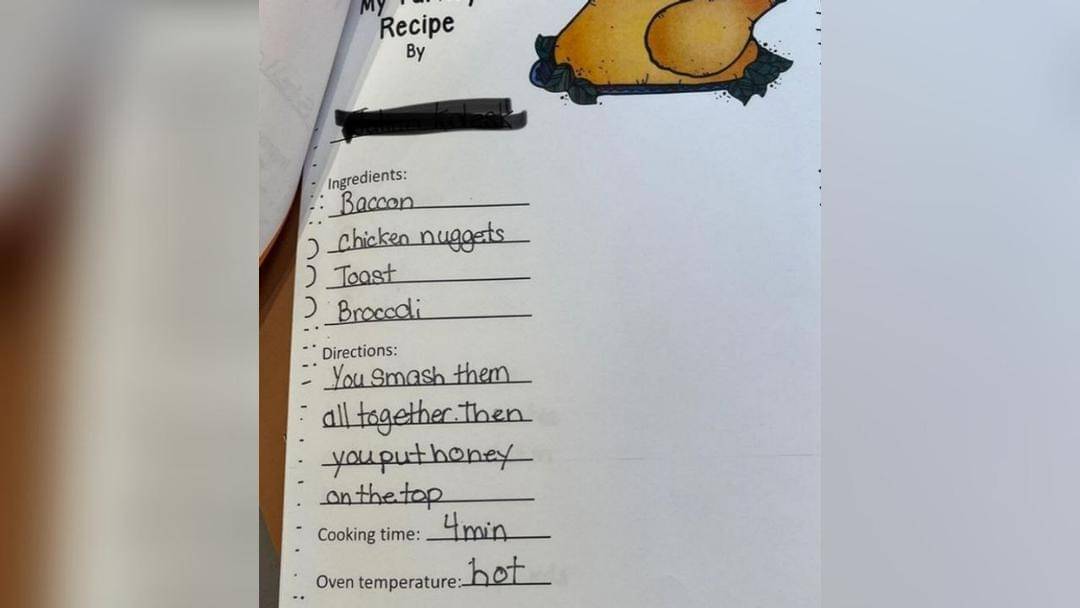 My
Recipe
By
Ingredients:
Baccon
Chicken nuggets
Toast
Broccoli
Directions:
You smash them
all together. Then
you put honey
on the top
Cooking time: 4 min
Oven temperature: hot